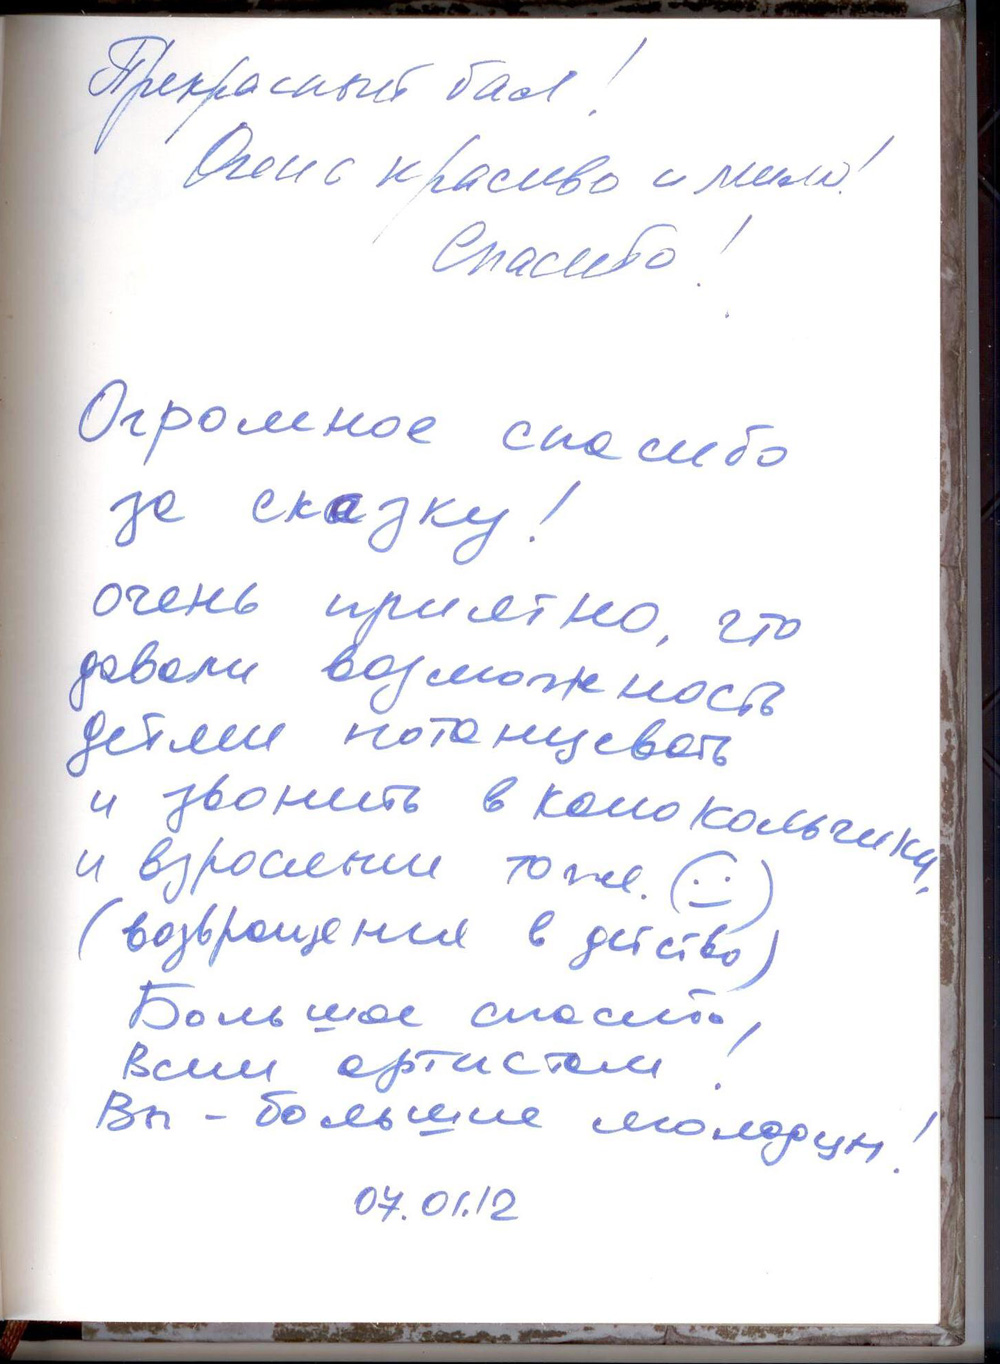 Прекрасный бал!
Очень красиво и мило!
Спасибо!
Огромное спасибо
за сказку!
очень приятно, что
давали возможность
детям потанцевать
и звонить в колокольчики,
и взрослым тоже. (🙂)
(возвращение в детство)
Большое спасибо,
всем артистам!
Вы - большие молодцы!
07.01.12